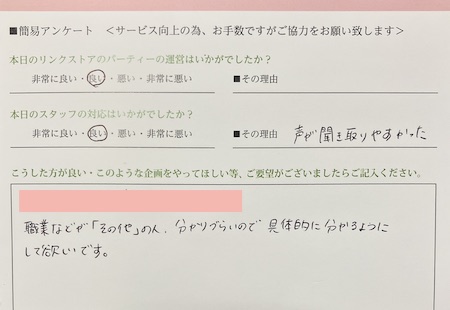 ■簡易アンケート　＜サービス向上の為、お手数ですがご協力をお願い致します＞
本日のリンクストアのパーティーの運営はいかがでしたか？
非常に良い・良い・悪い・非常に悪い　■その理由
本日のスタッフの対応はいかがでしたか？
非常に良い・良い・悪い・非常に悪い　■その理由　声が聞き取りやすかった
こうした方が良い・このような企画をやってほしい等、ご要望がございましたらご記入ください。
職業などが「その他」の人、分かりづらいので具体的に分かるように
して欲しいです。